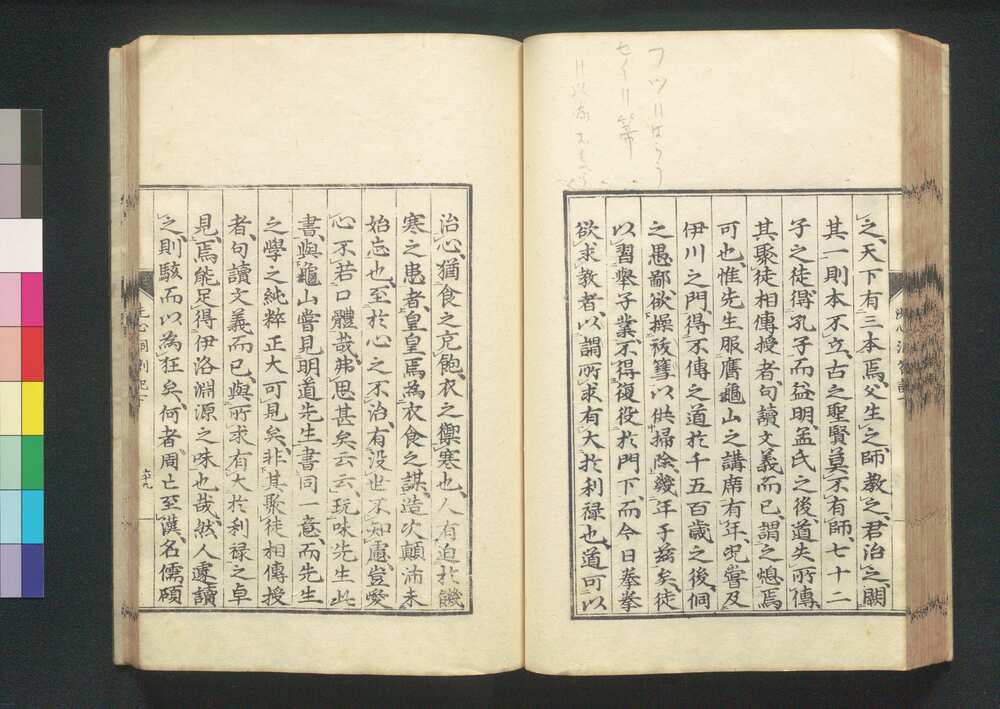 之、天下有三本焉、父生之、師教之、君治之、闕
其一則本不立、古之聖賢莫不有師、七十二
子之徒、得孔子而益明、孟氏之後道失所傳、
其聚徒相傳授者、句讀文義而已、謂之熄焉
可也、惟先生服膺龜山之講席有年、况嘗及
伊川之門、得不傳之道於千五百歲之後、侗
之愚鄙、欲操祓篲以供掃除幾年于茲矣、徒
以習擧子業、不得復役於門下、而今日拳拳
欲求教者、以謂所求有大於利祿也、道可以
治心、猶食之充飽、衣之禦寒也、人有迫於饑
寒之患者、皇皇焉為衣食之謀、造次顛沛未
始忘也、至於心之不治、有没世不知慮、豈愛
心不若口體哉、弗思甚矣云云、玩味先生此
書、與龜山嘗見明道先生書同一意、而先生
之學之純粹正大可見矣、非其聚徒相傳授
者、句讀文義而已、與所求有大於利祿之卓
見、焉能足得伊洛淵源之味也哉、然人遽讀
之則駭而以為狂矣、何者周亡至漢、名儒碩
六十九